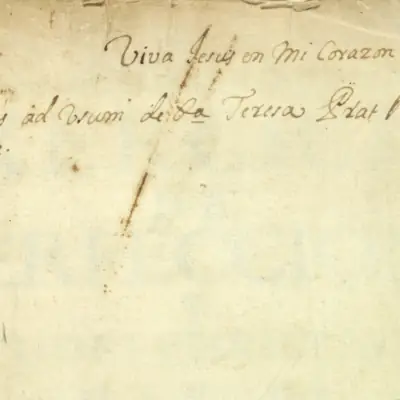 Viva Jesus en Mi Corazon
s ad Usum de Sa Teresa Prat